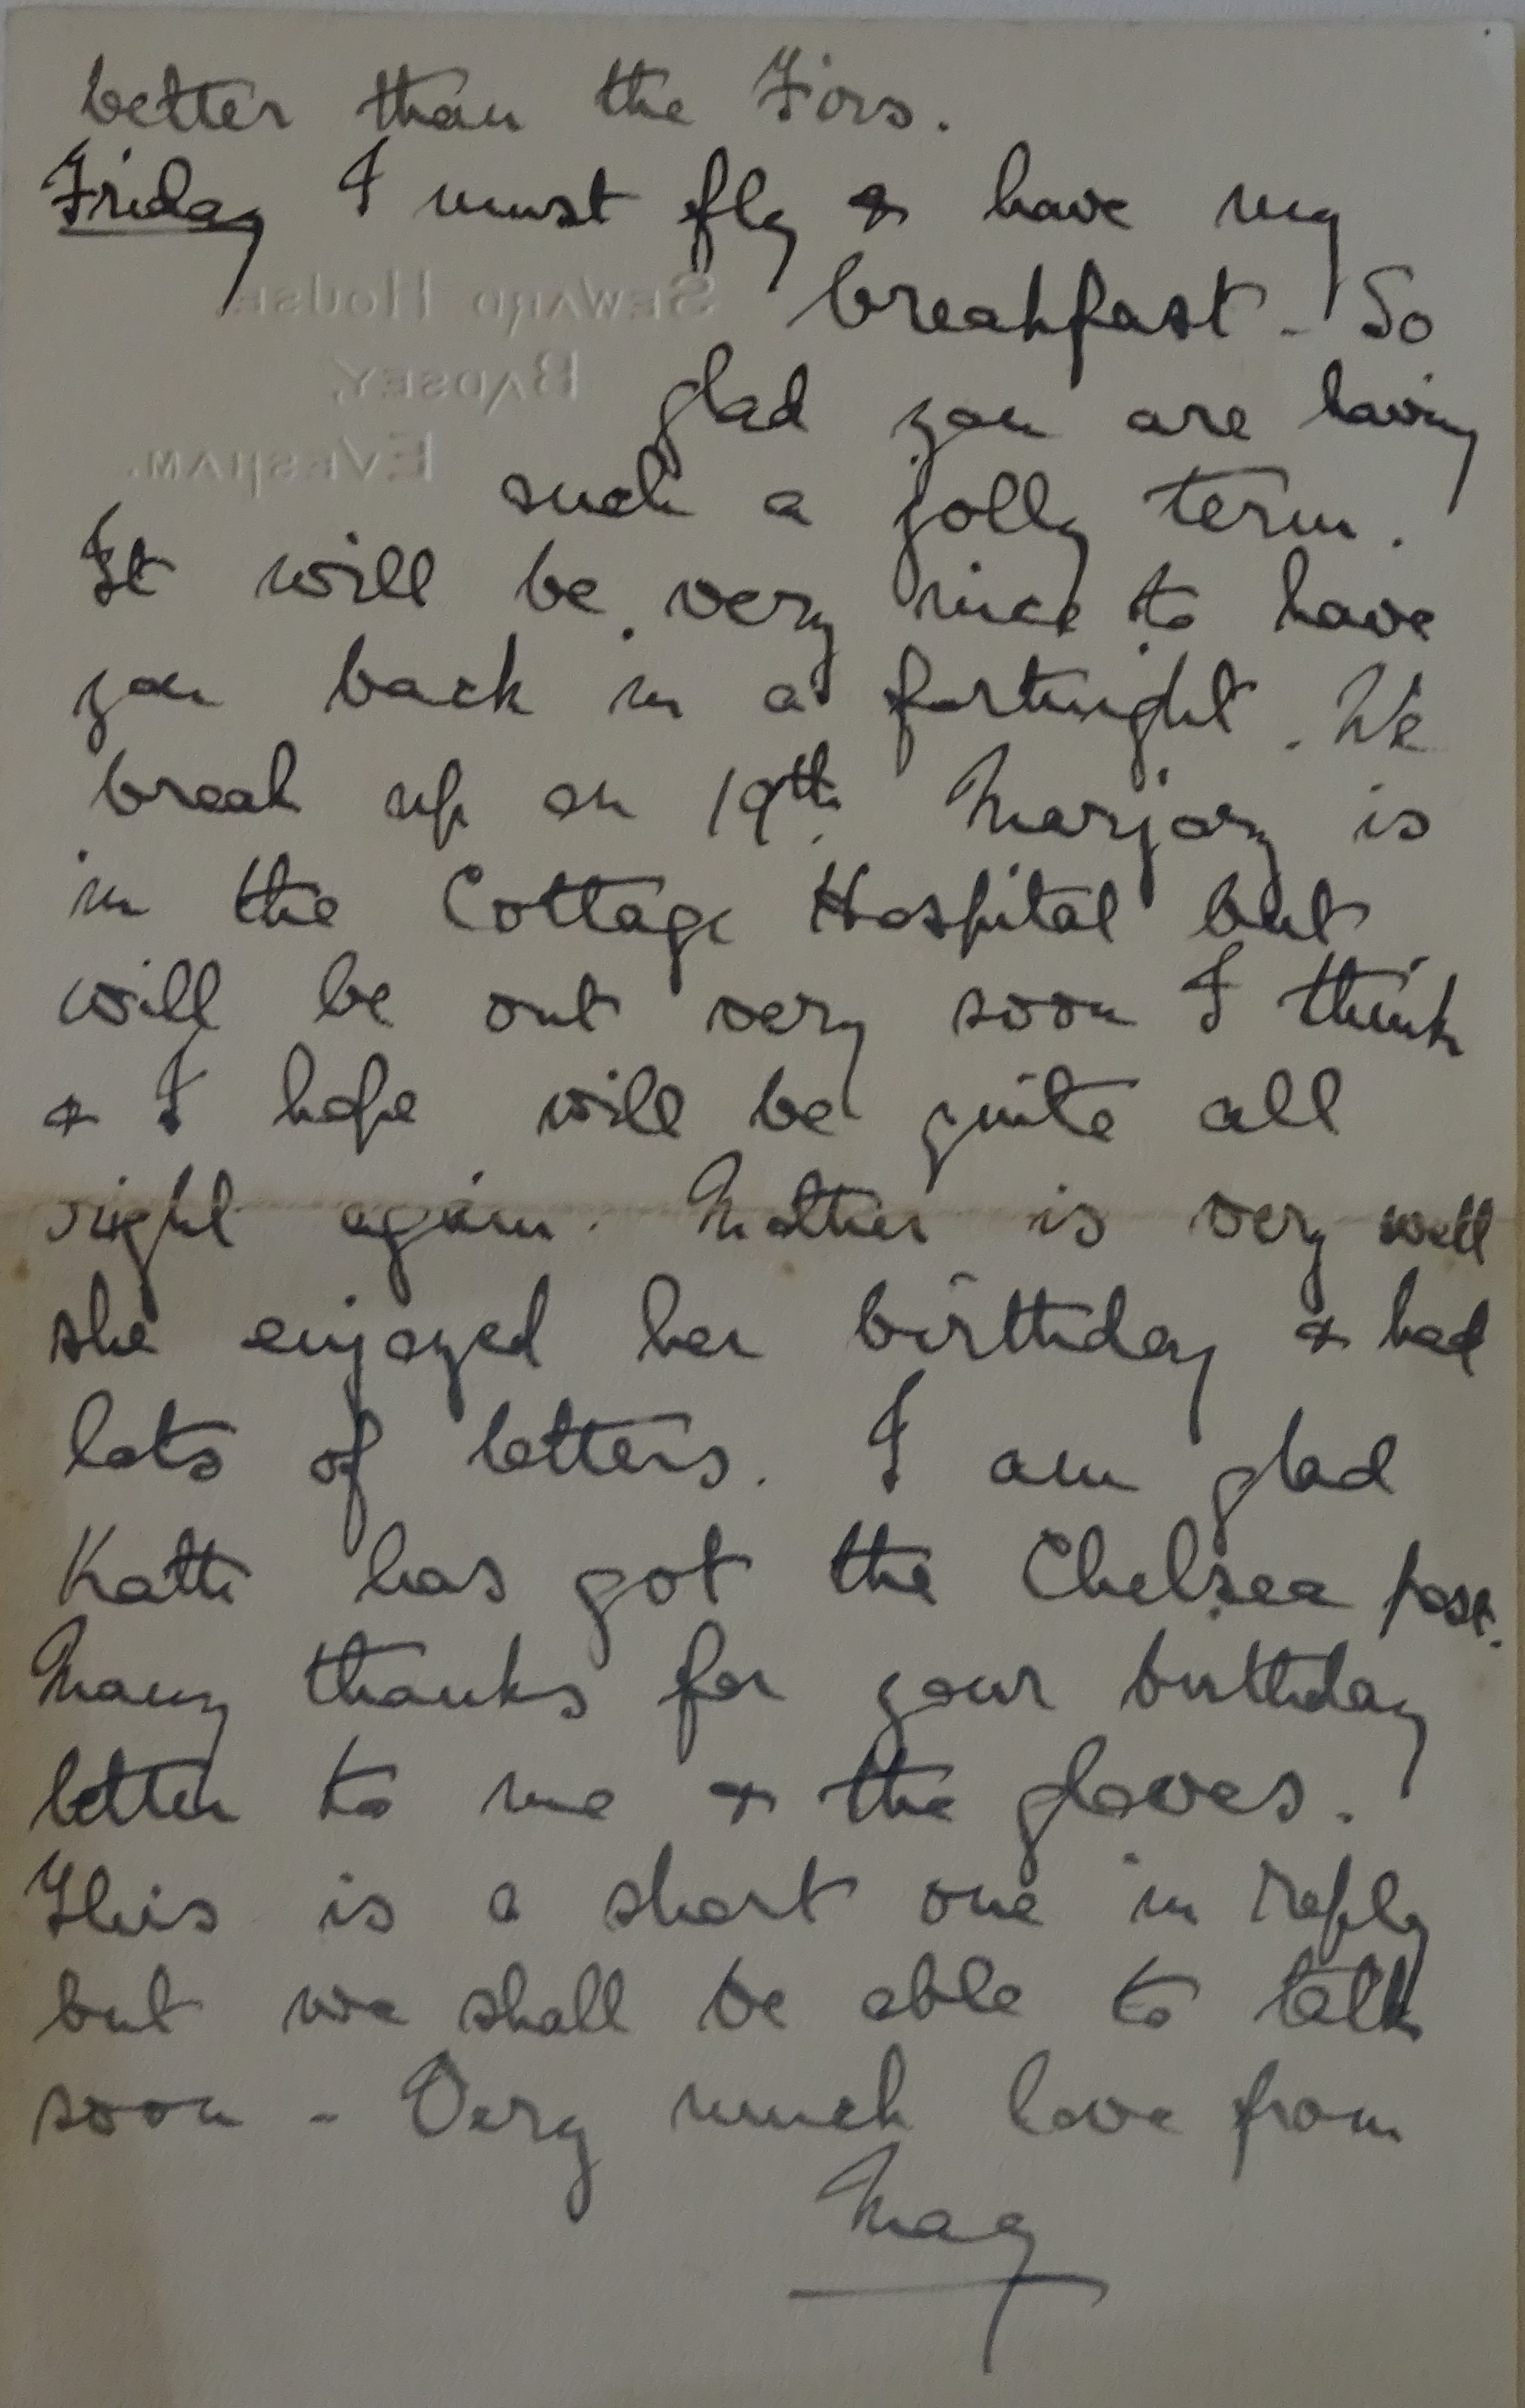 better than the Firs.
Friday I must fly & have my
Seward House
breakfast - So
Badsey,
glad you are having
Evesham.
such a jolly term.
It will be very nice to have
you back in a fortnight. We
break up on 19th. Marjory is
in the Cottage Hospital but
will be out very soon I think
& I hope will be quite all
right again. Mother is very well
she enjoyed her birthday & had
lots of letters. I am glad
has got the Chelsea post.
Many thanks for your birthday
letter to me & the gloves.
This is a short one in reply
but we shall be able to talk
soon - Very much love from
May